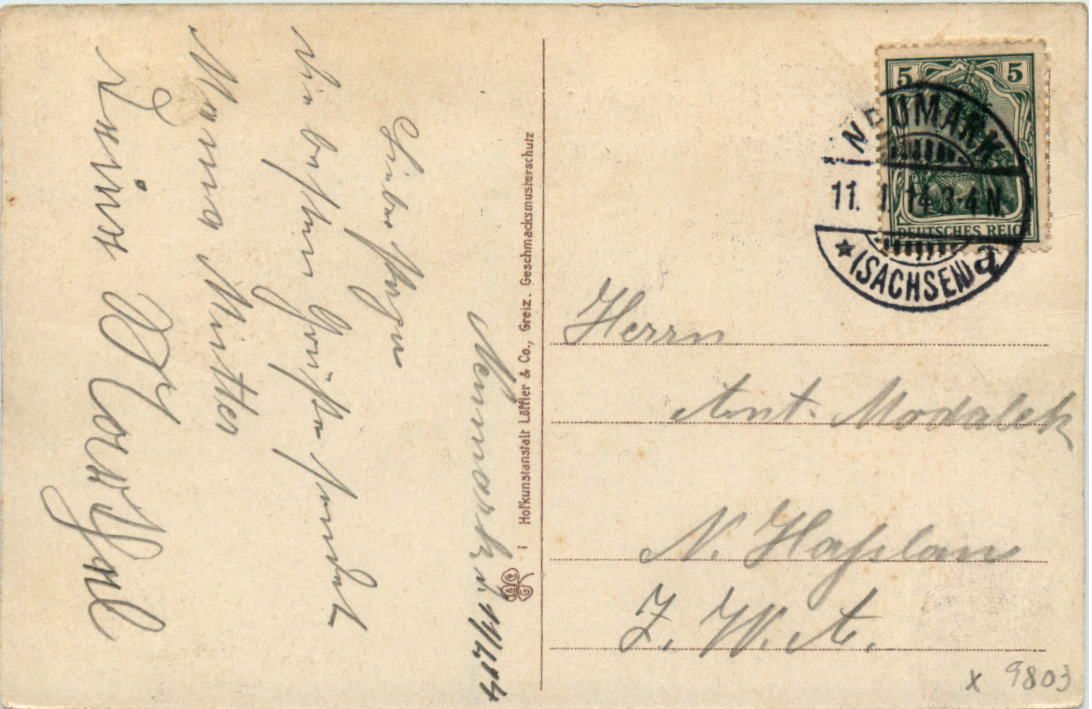 Neumark d. 11/1 14
Lieber
die besten Grüße sendet
Mama Mutter
5 5
NEUMARK
11. 1. 14. 3-4 N.
DEUTSCHES REICH
* (SACHSEN) a
Herrn
Ant. Modalek
N. Haßlau
Z. W. A.
Hofkunstanstalt Löffler & Co., Greiz. Geschmacksmusterschutz
x 9803